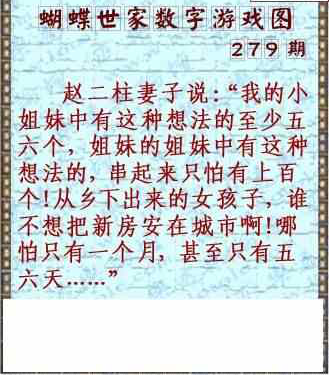 蝴蝶世家数字游戏图
279期
赵二柱妻子说:“我的小
姐妹中有这种想法的至少五
六个，姐妹的姐妹中有这种
想法的，串起来只怕有上百
个!从乡下出来的女孩子，谁
不想把新房安在城市啊!哪
怕只有一个月，甚至只有五
六天……”